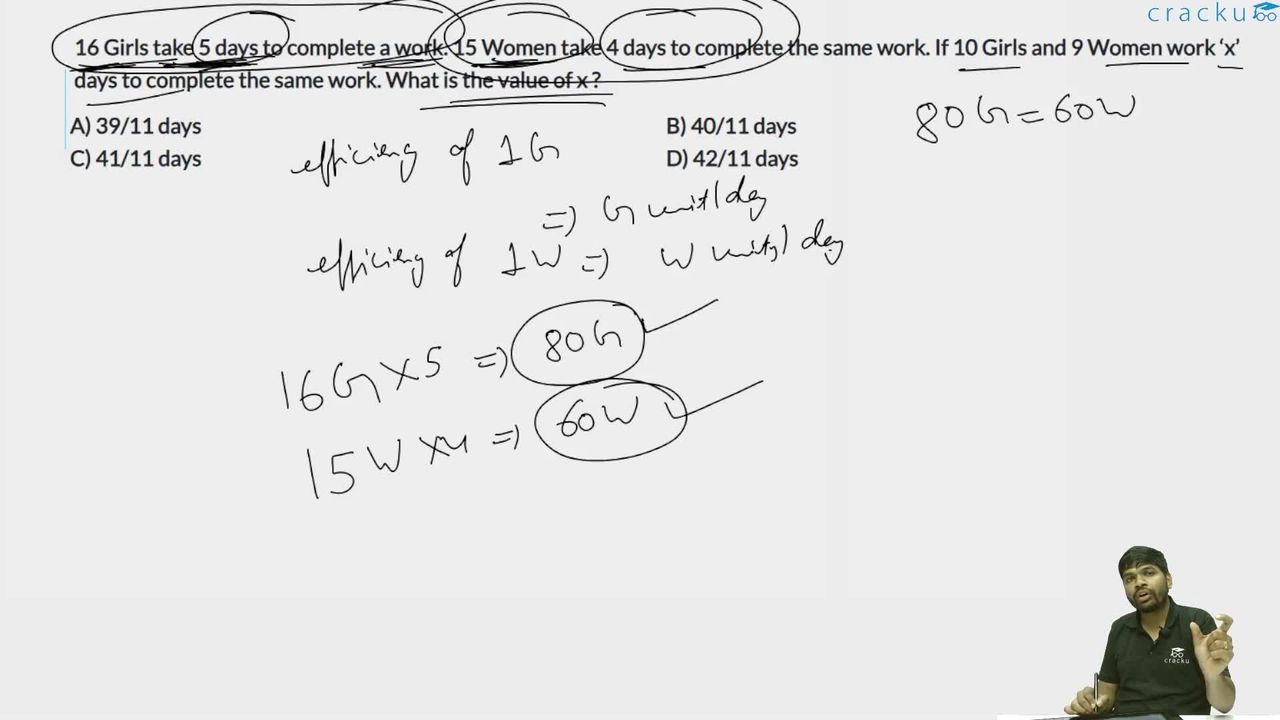 cracku
16 Girls take 5 days to complete a work. 15 Women take 4 days to complete the same work. If 10 Girls and 9 Women work ‘x’
days to complete the same work. What is the value of x ?
A) 39/11 days
B) 40/11 days
C) 41/11 days
D) 42/11 days
80G = 60W
efficieny of 1G
=) G unit/day
efficieny of 1W =) W units/day
16G X 5 =) 80G
15W X 4 =) 60W
cracku